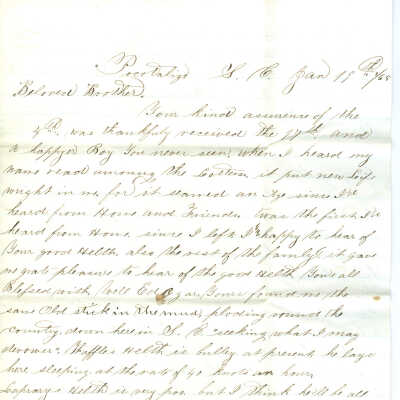 Pocotaligo S. C. Jan 19th /65
Beloved Brother,
Your kind assurence of the
4th. was thankfuly received the 18th, and
a happyer Boy You never seen; when I heard my
name read amoung the Letters it put new life
wright in me for it seamed an Age since I'v
heard from Home and Friends. twas the first I'v
heard from Home since I left. I'm happy to hear of
Your good Helth. also the rest of the family, it gave
me grate pleasure to hear of the good Helth You all
Blessed with. Well Yours found me the
same Old Stick in the mud, ploding round the
country, down here in S. C. seeking what I may
devower. Helth is bulley at present he lays
here sleeping at the rate of 40 knots an hour,
Helth is very poor but I think he'll be all